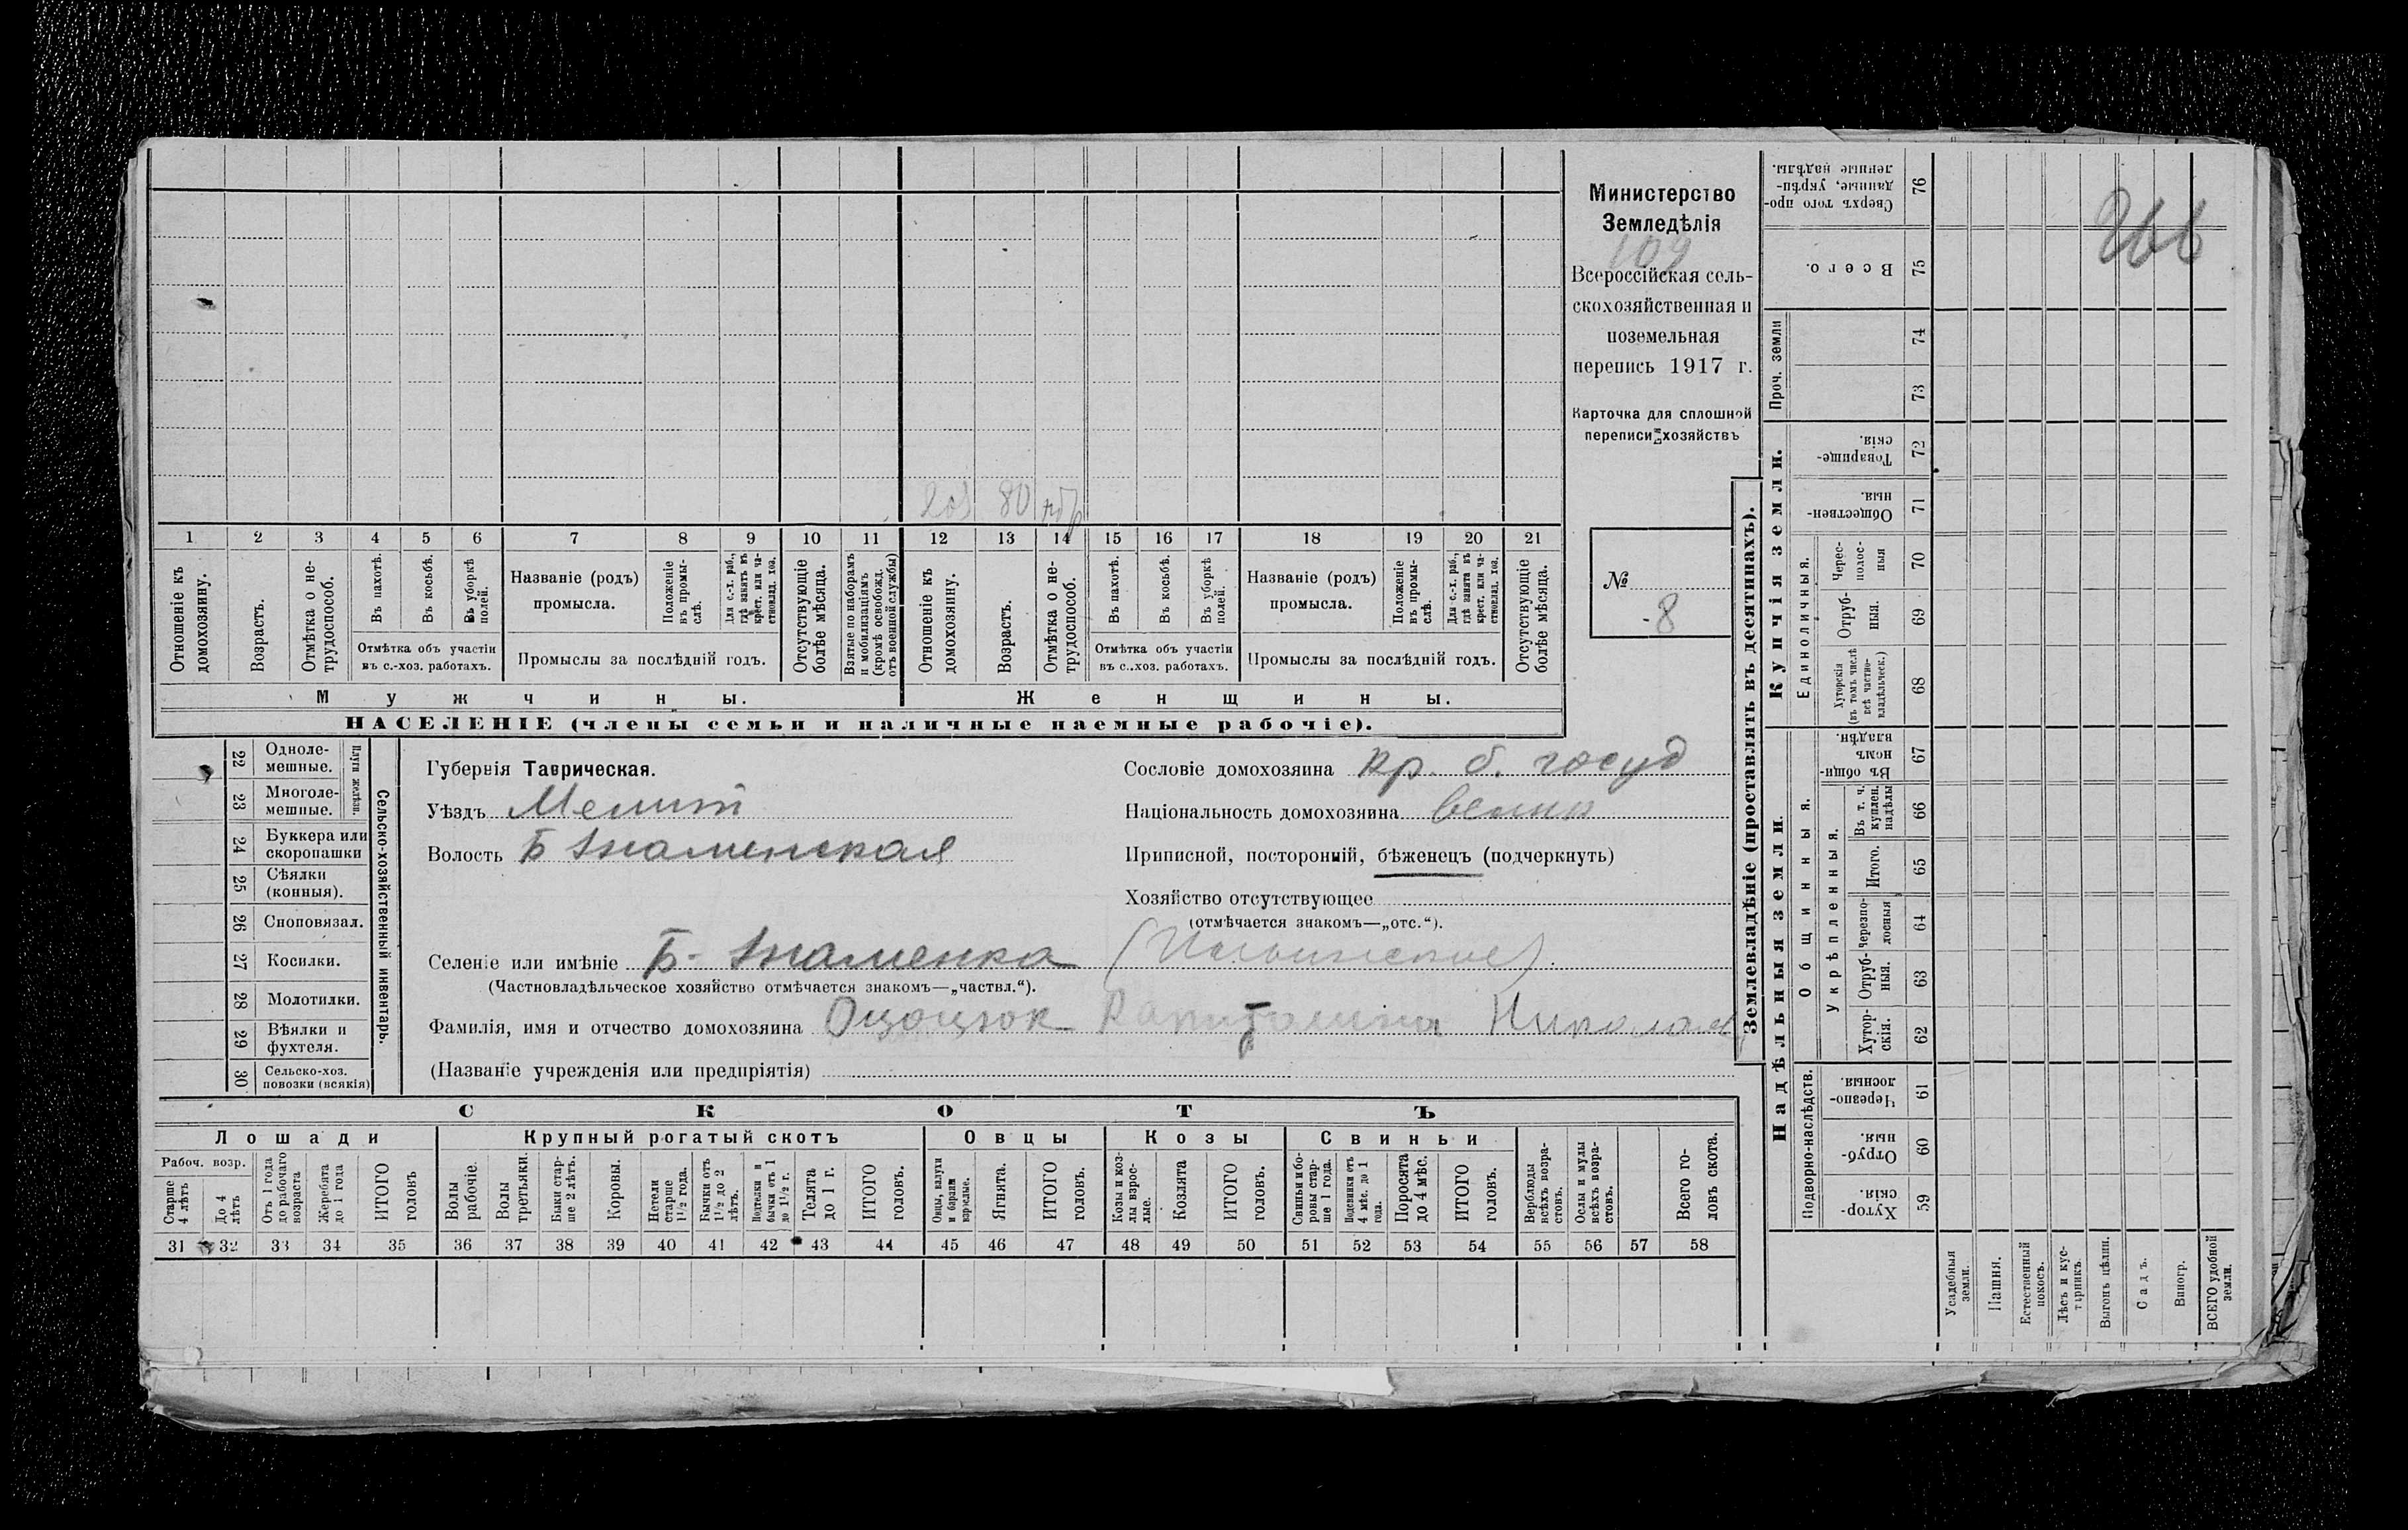 Министерство
Земледѣлія
109
Всероссійская сель-
скохозяйственная и
поземельная
перепись 1917 г.
Карточка для сплошной
переписи хозяйствъ
№
8
80
1 2 3 4 5 6 7 8 9 10 11 12 13 14 15 16 17 18 19 20 21
Отношеніе къ домохозяину.
Возрастъ.
Отмѣтка о не-трудоспособ.
Въ пахотѣ.
Въ косьбѣ.
Въ уборкѣ полей.
Отмѣтка объ участіи
въ с.-хоз. работахъ.
Названіе (родъ)
промысла.
Положеніе въ промы-слѣ.
Для с.-х. раб., гдѣ занятъ въ крест. или ча-стновлад. хоз.
Промыслы за послѣдній годъ.
Отсутствующіе болѣе мѣсяца.
Взятые по наборамъ и мобилизаціямъ (кромѣ освобожд. отъ военной службы)
Отношеніе къ домохозяину.
Возрастъ.
Отмѣтка о не-трудоспособ.
Въ пахотѣ.
Въ косьбѣ.
Въ уборкѣ полей.
Отмѣтка объ участіи
въ с..хоз. работахъ.
Названіе (родъ)
промысла.
Положеніе въ промы-слѣ.
Для с.-х. раб., гдѣ занята въ крест. или ча-стновлад. хоз.
Промыслы за послѣдній годъ.
Отсутствующіе болѣе мѣсяца.
Мужчины. Женщины.
НАСЕЛЕНІЕ (члены семьи и наличные наемные рабочіе).
22 Одноле-мешные.
23 Многоле-мешные.
Плуги желѣзн.
24 Буккера или скоропашки
25 Сѣялки (конныя).
26 Сноповязал.
27 Косилки.
28 Молотилки.
29 Вѣялки и фухтеля.
30 Сельско-хоз. повозки (всякія)
Сельско-хозяйственный инвентарь.
Губернія Таврическая.
Уѣздъ Мелит
Волость Б Знаменская
Сословіе домохозяина кр. б. госуд
Національность домохозяина велик
Приписной, посторонній, бѣженецъ (подчеркнуть)
Хозяйство отсутствующее
(отмѣчается знакомъ—„отс.“).
Селеніе или имѣніе Б- Знаменка
(Частновладѣльческое хозяйство отмѣчается знакомъ—„частвл.“).
Фамилія, имя и отчество домохозяина Ощоцюк Капитолина Никола
(Названіе учрежденія или предпріятія)
СКОТЪ
Лошади
Крупный рогатый скотъ
Овцы
Козы
Свиньи
Рабоч. возр.
Старше 4 лѣтъ
До 4 лѣтъ
Отъ 1 года до рабочаго возраста
Жеребята до 1 года
ИТОГО головъ
Волы рабочіе.
Волы третьяки.
Быки стар-ше 2 лѣтъ.
Коровы.
Нетели старше 1½ года.
Бычки отъ 1½ до 2 лѣтъ.
Подтелки и бычки отъ 1 до 1½ г.
Телята до 1 г.
ИТОГО головъ.
Овцы, валухи и бараны взрослые.
Ягнята.
ИТОГО головъ.
Козы и коз-лы взрос-лые.
Козлята
ИТОГО головъ.
Свиньи и бо-ровы стар-ше 1 года.
Подсвинки отъ 4 мѣс. до 1 года.
Поросята до 4 мѣс.
ИТОГО головъ.
Верблюды всѣхъ возра-стовъ.
Ослы и мулы всѣхъ возра-стовъ.
Всего го-ловъ скота.
31 32 33 34 35 36 37 38 39 40 41 42 43 44 45 46 47 48 49 50 51 52 53 54 55 56 57 58
Землевладѣніе (проставлять въ десятинахъ).
Надѣльныя земли.
Купчія земли.
Проч. земли
Подворно-наслѣдств.
Общинныя.
Укрѣпленныя.
Единоличныя.
Сверхъ того про-данные, укрѣп-ленные надѣлы. 76
Всего. 75
74
73
Товарище-скія. 72
Обществен-ныя. 71
Черес-полос-ныя 70
Отруб-ныя. 69
Хуторскія (въ томъ числѣ всѣ частно-владѣльческ.) 68
Въ общин-номъ владѣн. 67
Въ т. ч. куплен. надѣлы 66
Итого. 65
Черезпо-лосныя 64
Отруб-ныя. 63
Хутор-скія. 62
Черезпо-лосныя. 61
Отруб-ныя. 60
Хутор-скія. 59
Усадебныя земли.
Пашня.
Естественный покосъ.
Лѣсъ и кус-тарникъ.
Выгонъ цѣлин.
Садъ.
Виногр.
ВСЕГО удобной земли.
266